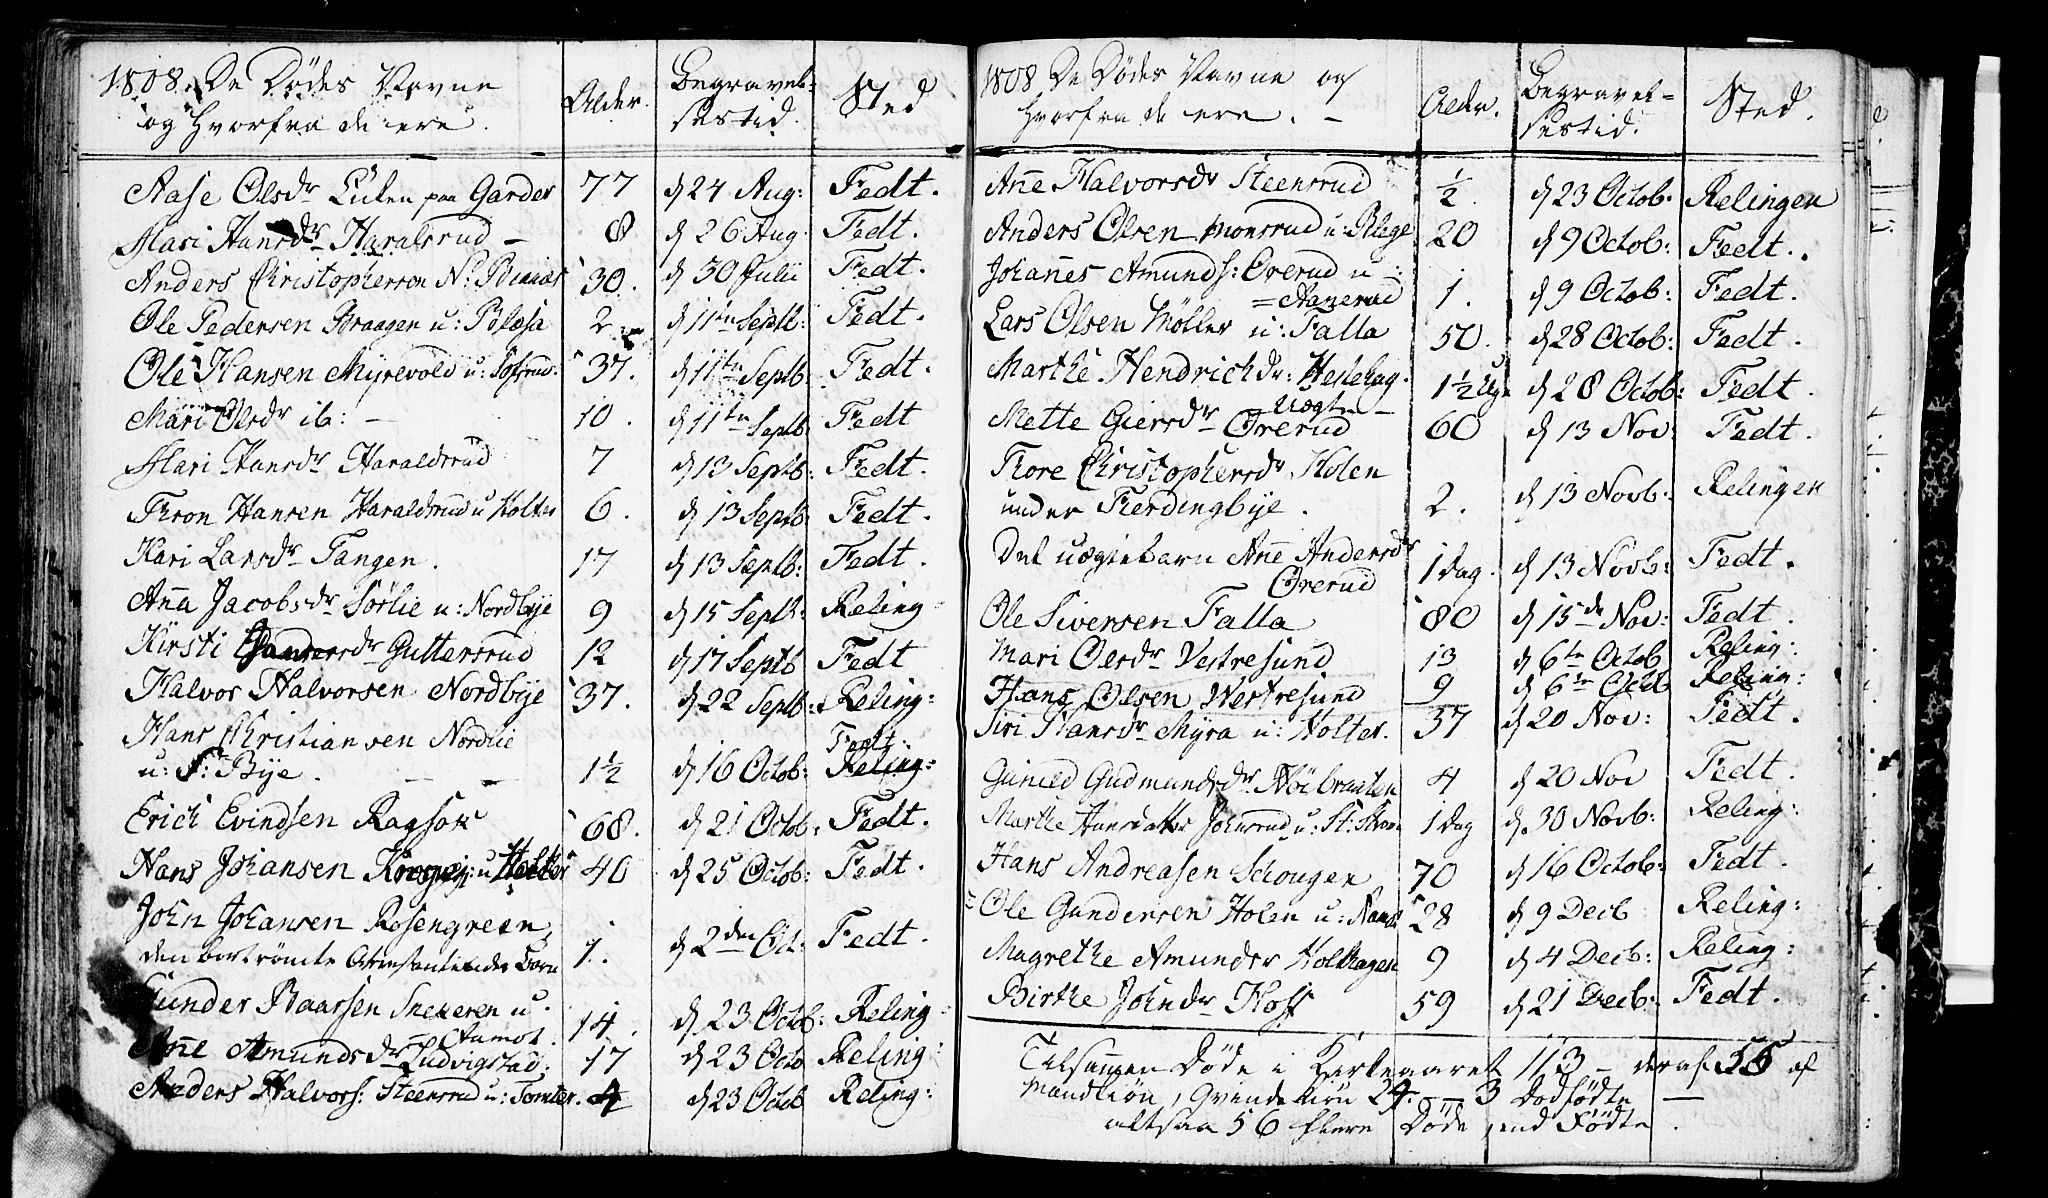 1808. De Dødes Navne
og hvorfra de ere.
Alder.
Begravel=
sestid.
Sted
Aase Olsdr Lüken paa Garder 77 d 24 Aug: Fedt.
Mari Hansdr Haralsrud – 8 d 26 Aug Fedt.
Anders Christophersen N: 30. d 30 Julii Fedt.
Ole Pedersen Braagen u: Bøløsa 2 d 11te Septb: Fedt.
Ole Hansen Myrevold u: Tofsrud. 37. d 11te Septb: Fedt.
Mari Olsdr ib: – 10. d 11te Septb: Fedt
Mari Hansdr Haraldsrud 7 d 13 Septb: Fedt.
Thron Hansen Haraldsrud u Holter 6. d 13 Septb: Fedt.
Kari Larsdr Tangen. 17 d 13 Septb: Fedt.
Anna Jacobsdr Sørlie u: Nordbye 9 d 15 Septb: Reling
Kirsti Guttersrud 12 d 17 Septb Fedt
Halvor Halvorsen Nordbye 37. d 22 Septb: Reling:
Hans Christiansen Nordlie
Fedt:
u: S: Bye. – – 1½ d 16 Octob: Reling:
Erich Evindsen Ragsok 68. d 21 Octob: Fedt.
Hans Johansen u: Holter 40 d 25 Octob: Fedt.
John Johansen Rosengreen,
den bortrømte Arrestantindes Barn 1. d 2den Oct: Fedt.
Gunder Baarsen Snekeren u:
Aamot. 14. d 23 Octob: Reling
Anne Amundsdr Ludvigstad. 17 d 23 Octo Reling:
Anders Halvors: Steensrud u: Tomter. 4 d 23 Octob Reling:
1808 De Dødes Navne og
hvorfra de ere. –
Alder.
Begravel=
sestid.
Sted.
Anne Halvorsdr Steensrud ½. d 23 Octob: Relingen
Anders Olsen Monsrud u: Blege 20 d 9 Octob: Fedt.
Johannes Amunds: Ørerud u –:
= Aanerud 1. d 9 Octob: Fedt.
Lars Olsen Møller u: Falla 50. d 28 Octob: Fedt.
Marthe Hendrichdr: Hestehag. 1½ Uge d 28 Octob: Fedt.
Uægte –
Mette Giersdr Ørerud 60 d 13 Nov: Fedt.
Thore Christophersdr Holen
under Fierdingbye. 2. d 13 Novb: Relingen
Det uægtebarn Anne Andersdr
Ørerud 1 dag. d 13 Novb: Fedt.
Ole Siversen Falla 80 d 15de Nov: Fedt.
Mari Olsdr Vestresund 13 d 6te Octob Reling:
Hans Olsen Westresund 9 d 6te Octob Reling:
Siri Hansdr Myra u: Holter. 37 d 20 Nov: Fedt.
Gunild Gudmundsdr Høibraaten 4 d 20 Nov Fedt.
Marthe Hansdatter Johnsrud u: St: 1 dag d. 30 Novb: Reling:
Hans Andreasen Schougen 70 d 16 Octob: Fedt.
Ole Gundersen Holen u: 28 d 9 Decb Reling:
Magrethe Amundsdr Holthagen 9 d 4 Decb: Reling:
Birthe Johndr Hoff 59 d 21 Decb: Fedt.
Tilsammen Døde i Kirkeaaret 113 – deraf 55 af
Mandkiøn, Qvindekiøn 24. – 3 Dødfødte –
altsaa 56 flere Døde, end Fødte.